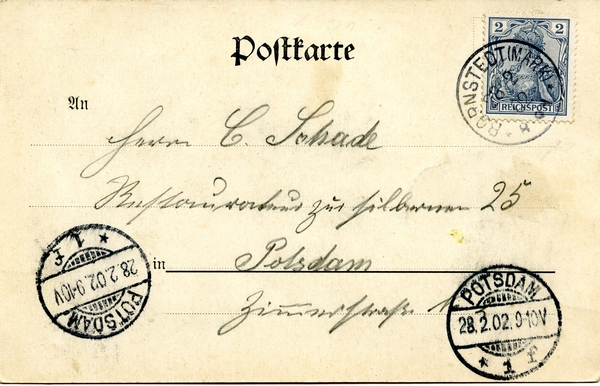 Postkarte
2 2
REICHSPOST
BORNSTEDT (MARK)
An
Herrn C. Schade
Restaurateur zur silbernen 25
in Potsdam
Zimmerstraße
POTSDAM
28.2.02.9-10V
* 1 f
POTSDAM
28.2.02.9-10V
* 1 f